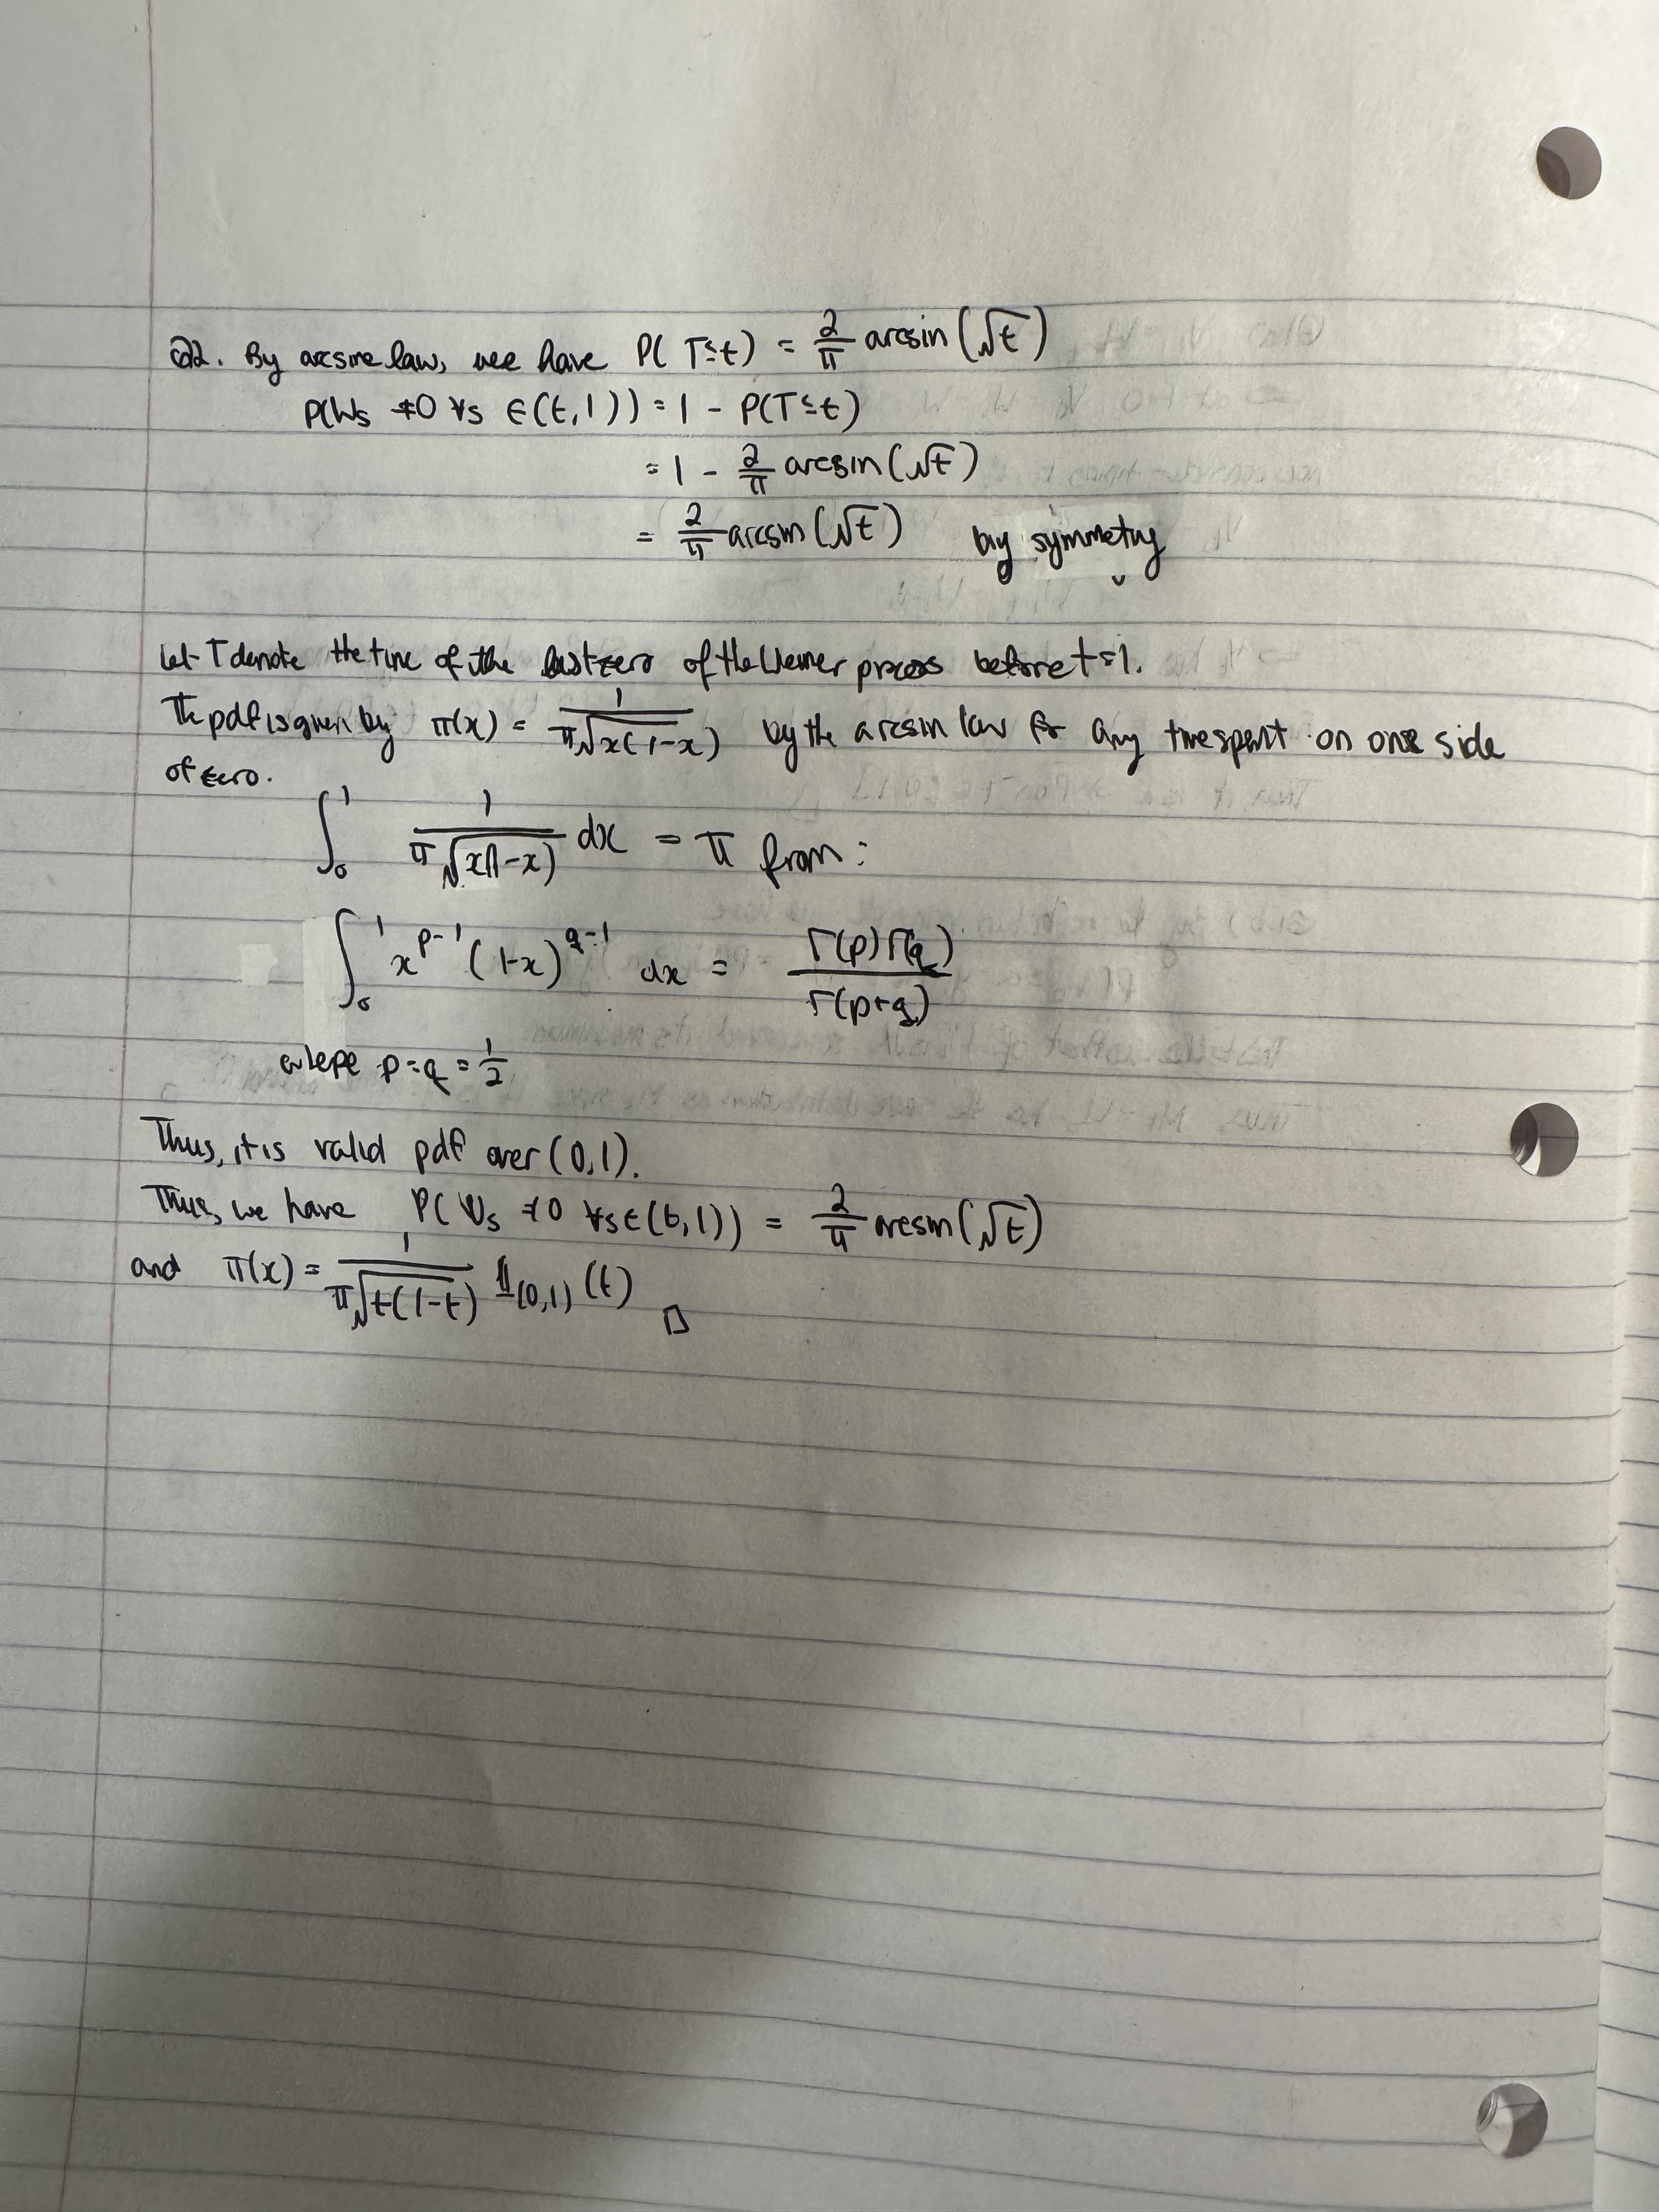 Q2. By arcsine law, we have P(T≤t) = 2/π arcsin(√t)
P(Ws ≠0 ∀s ∈(t,1)) = 1 - P(T≤t)
= 1 - 2/π arcsin(√t)
= 2/π arcsin(√t) by symmetry
Let T denote the time of the last zero of the Wiener process before t=1.
The pdf is given by π(x) = 1/(π√(x(1-x))) by the arcsin law for any time spent on one side
of zero.
∫₀¹ 1/(π√(x(1-x))) dx = π from:
∫₀¹ x^(p-1) (1-x)^(q-1) dx = Γ(p)Γ(q)/Γ(p+q)
where p=q=1/2
Thus, it is valid pdf over (0,1).
Thus, we have P(Ws ≠0 ∀s∈(t,1)) = 2/π arcsin(√t)
and π(x) = 1/(π√(t(1-t))) 𝟙(0,1) (t) □